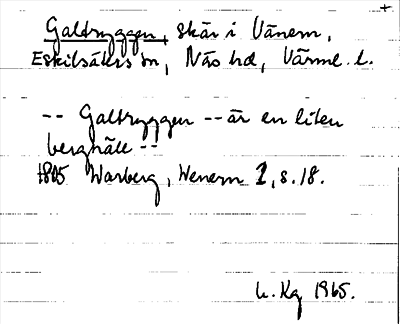 +
Galtryggen, skär i Vänern,
Eskilsäters sn, Näs hd, Värml. l.
-- Galtryggen -- är en liten
berghäll --
1805 Warberg, Wenern 1, s. 18.
1965.